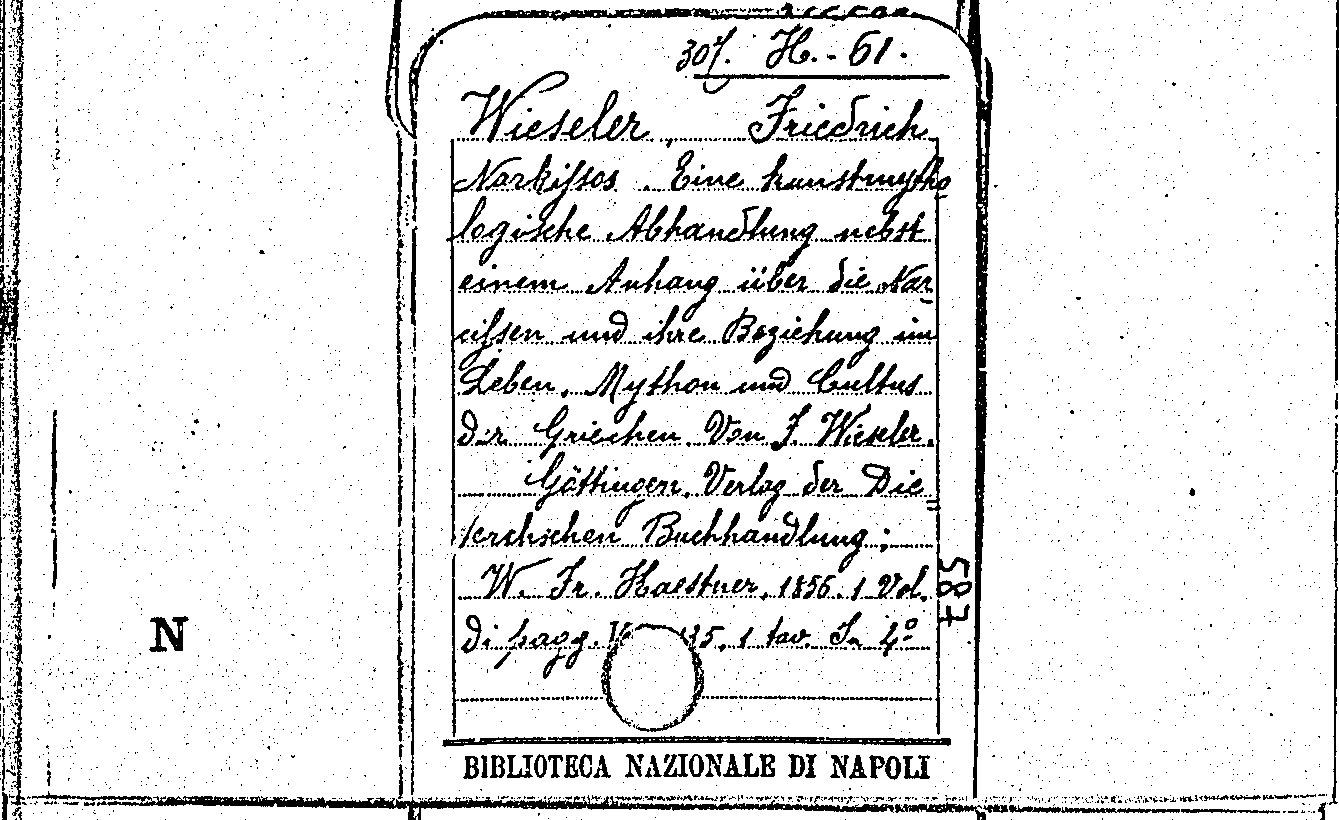 307. H. - 61.
Wieseler, Friedrich
Narkissos. Eine kunstmytho
logische Abhandlung nebst
einem Anhang über die Nar
cissen und ihre Beziehung im
Leben, Mython und Cultus
der Griechen. Von F. Wieseler.
Göttingen, Verlag der Die
terchschen Buchhandlung;
W. Fr. Kaestner, 1856. 1 Vol.
di pagg. 135, 1 tav. In 4º
587
N
BIBLIOTECA NAZIONALE DI NAPOLI